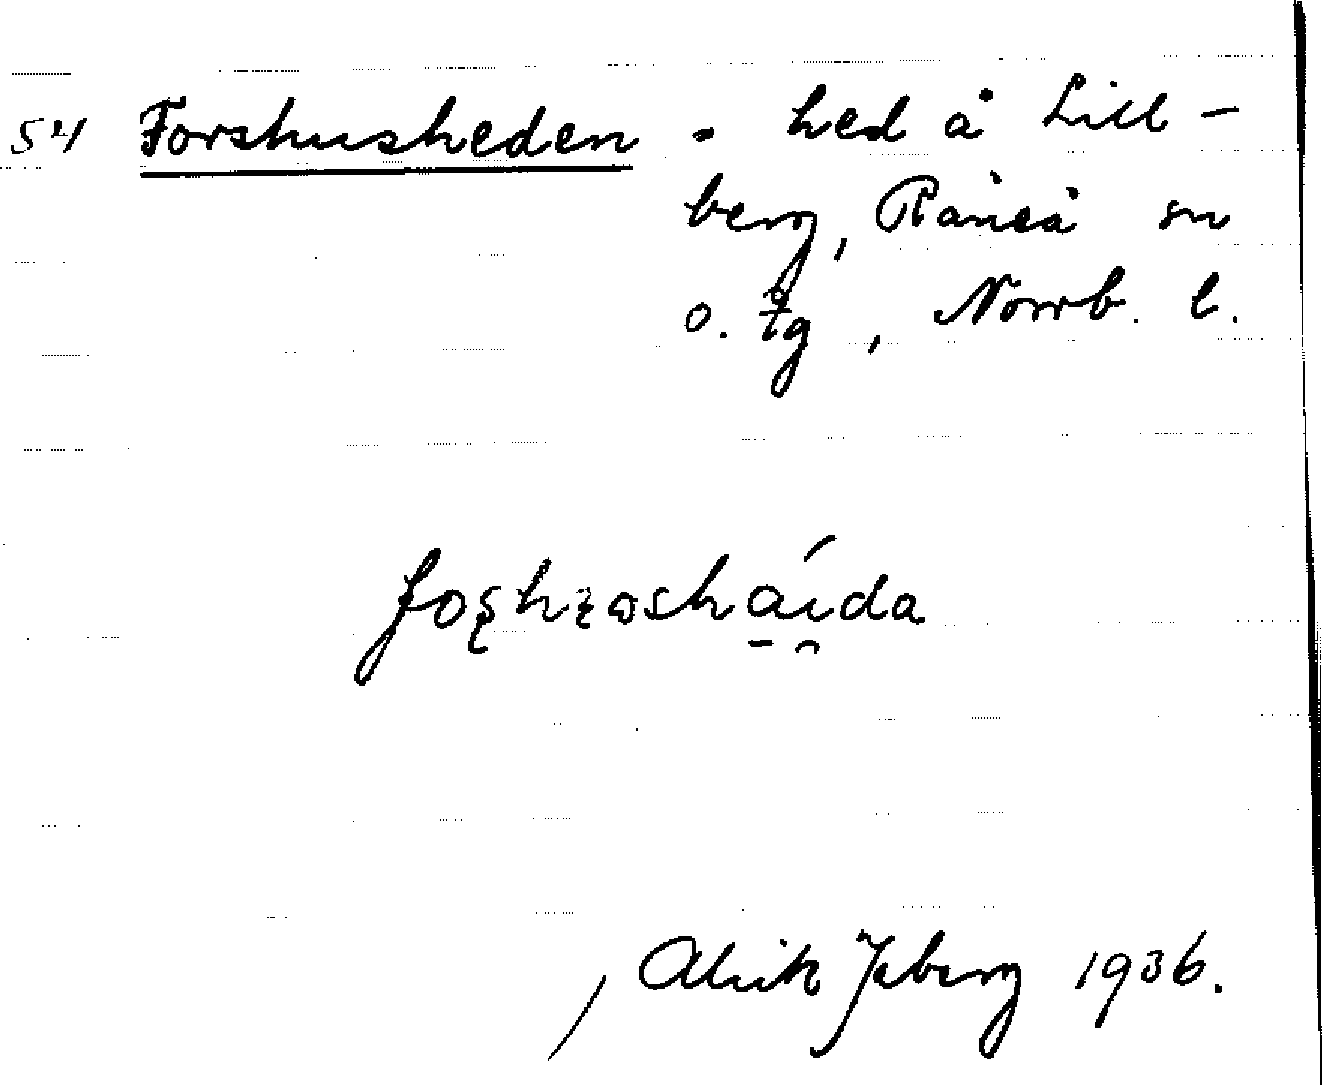 54 Forshusheden . hed å Lill-
berg, Råneå sn
o. tg, Norrb. l.
Alrik Isberg 1936.